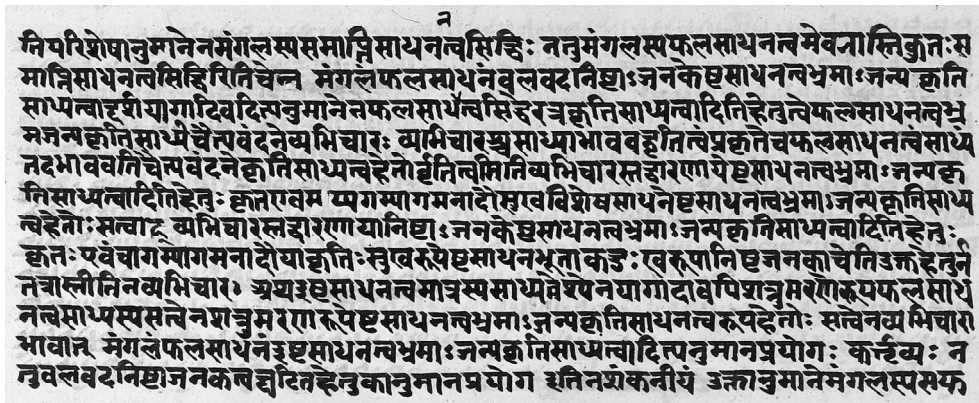 न
तिपरिशेषानुमानेनमंगलस्पसमाप्तिसाधनत्वसिद्धिः ननुमंगलस्पफलसाधनत्वमेवनास्तिकुतःस
माप्तिसाधनत्वसिद्धिरितिचेन्न मंगलफलसाधनंबलवदनिष्टाऽजनकेष्टसाधनत्वभ्रमाऽजन्यकृति
साध्यत्वाद्दर्शयागादिवदित्यनुमानेनफलसाधत्वसिद्धेरत्रकृतिसाध्यत्वादितिहेतुत्वेफलसाधनत्वभ्र
मजन्यकृतिसाध्येचैत्यवंदनेव्यभिचारः व्यभिचारश्चसाध्याभाववद्वृत्तित्वंप्रकृतेचफलसाधनत्वंसाध्यं
तदभाववतिचैत्यवंदनेकृतिसाध्यत्वहेतोर्वृत्तित्वमितिव्यभिचारस्तद्वारणायेष्टसाधनत्वभ्रमाऽजन्यकृ
तिसाध्यत्वादितिहेतुः कृतएवम प्यगम्यागमनादौसुखविशेषसाधनेष्टसाधनत्वभ्रमाऽजन्यकृतिसाध्य
त्वहेतोःसत्वाद् व्यभिचारस्तद्वारणायानिष्टाऽजनकेष्टसाधनत्वभ्रमाऽजन्यकृतिसाध्यत्वादितिहेतुः
कृतः एवंचागम्यागमनादौयाकृतिःसुखरूपेष्टसाधनभूताकदुःखरूपानिष्टजनकाचेतिउक्तहेतुर्न
तत्रास्तीतिनव्यभिचारः अत्रइष्टसाधनत्वमात्रस्यसाध्यत्वेश्येनयागादावपिशत्रुमरणरूपफलसाध
नत्वसाध्यस्यसत्वेनशत्रुमरणरूपेष्टसाधनत्वभ्रमाऽजन्यकृतिसाधनत्वरूपहेतोः सत्वेनव्यभिचारा
भावात् मंगलंफलसाधनंइष्टसाधनत्वभ्रमाऽजन्यकृतिसाध्यत्वादित्यनुमानप्रयोगः कर्त्तव्यः न
तुबलवदनिष्टाजनकत्वघटितहेतुकानुमानप्रयोग इतिनशंकनीयं उक्तानुमानेमंगलस्पसफ